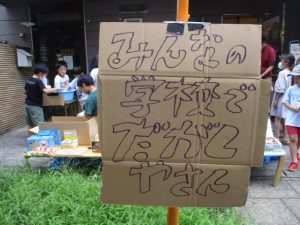 みんなの
学校で
だがし
やさん